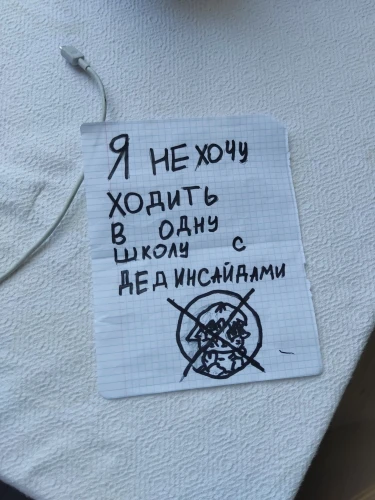 Я НЕ ХОЧУ
ХОДИТЬ
В ОДНУ
ШКОЛУ С
ДЕД ИНСАЙДАМИ